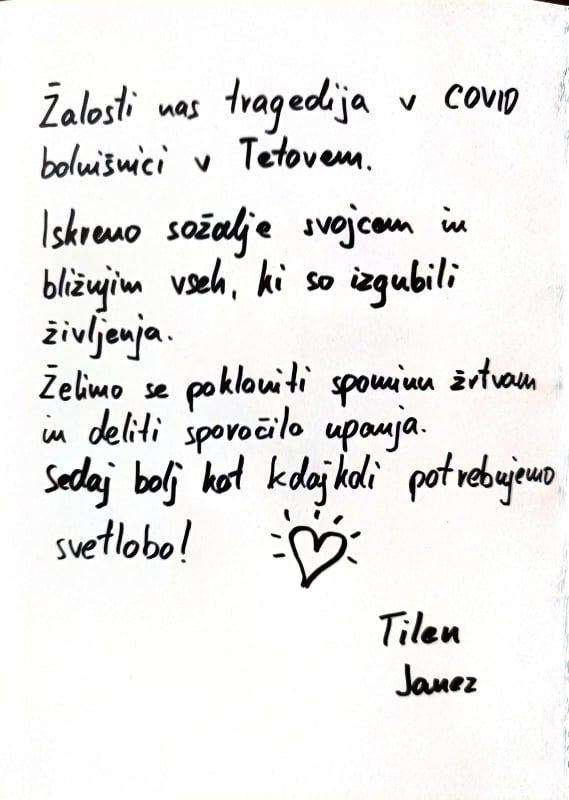 Žalosti nas tragedija v COVID
bolnišnici v Tetovem.
Iskreno sožalje svojcem in
bližnjim vseh, ki so izgubili
življenja.
Želimo se pokloniti spominu žrtvam
in deliti sporočilo upanja.
Sedaj bolj kot kdajkoli potrebujemo
svetlobo!
Tilen
Janez